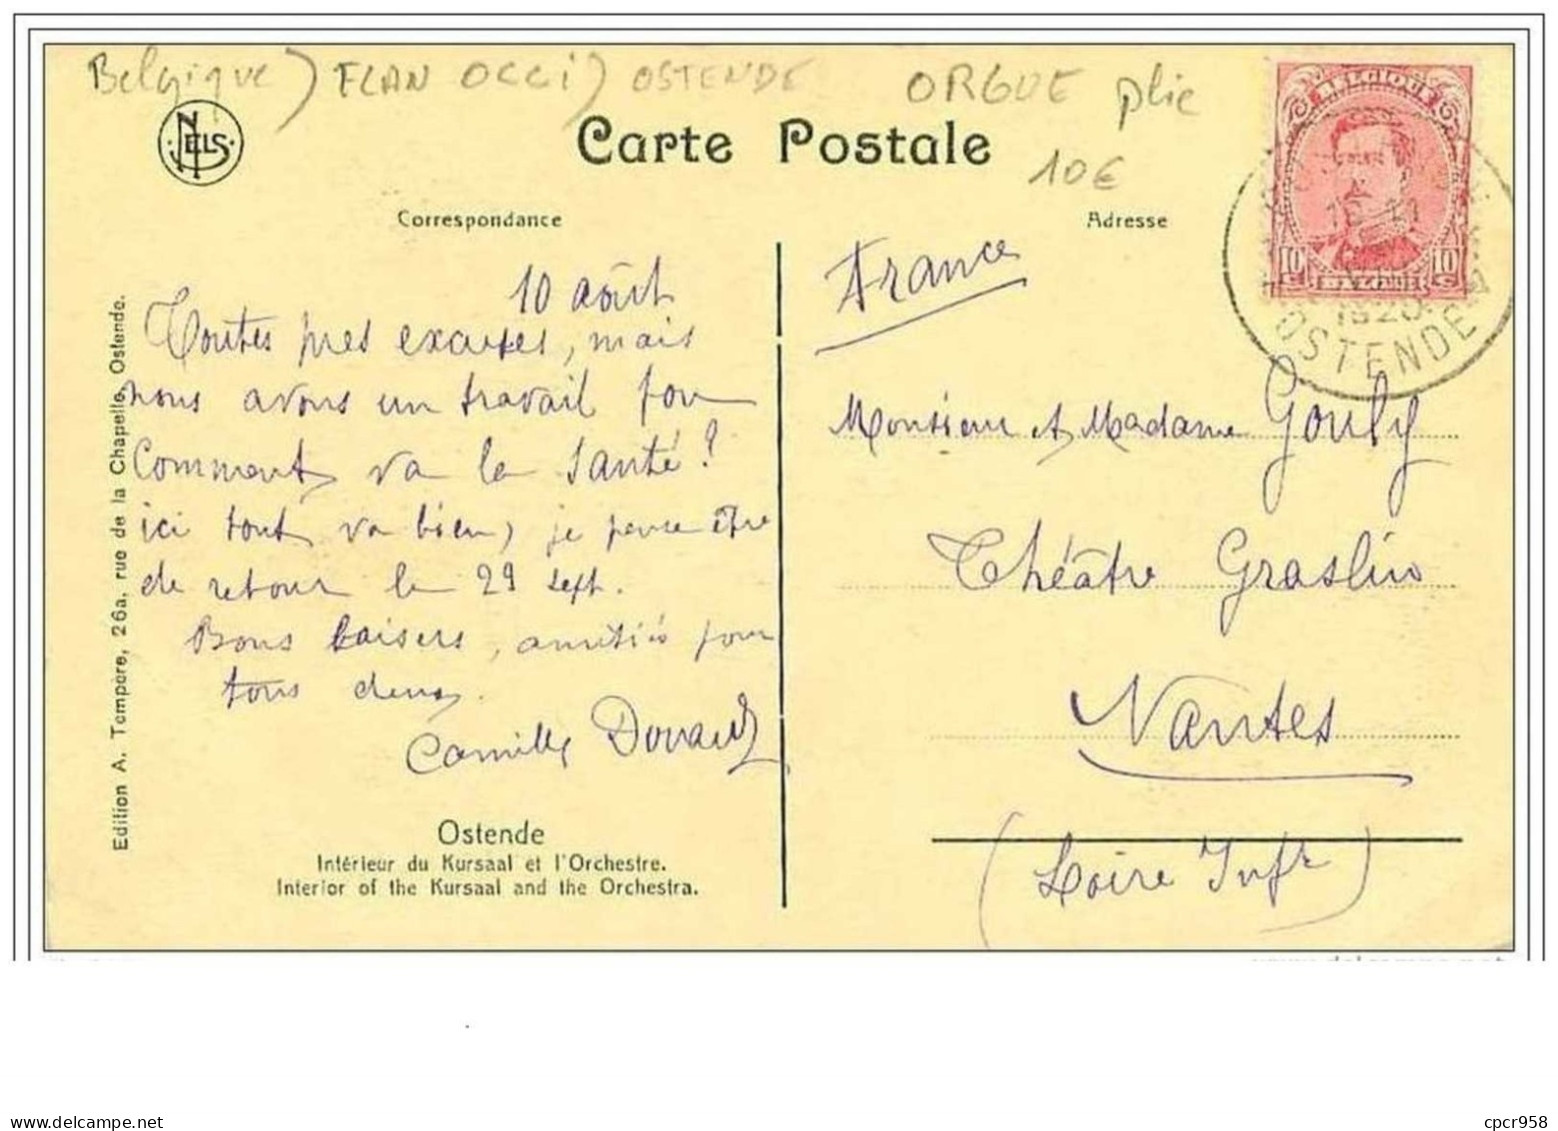 Belgique) FLAN OCCI) OSTENDE ORGUE plié
10€
NELS
Carte Postale
Correspondance
Adresse
BELGIQUE
10 c 10 c
BELGIË
1920
OSTENDE
10 août
Toutes mes excuses, mais
nous avons un travail fou
Comment va la santé ?
ici tout va bien, je pense être
de retour le 29 sept.
Bons baisers, amitiés pour
tous deux.
Camille
France
Monsieur et Madame Gouly
Théâtre Graslin
Nantes
(Loire Infr)
Edition A. Tempere, 26a, rue de la Chapelle, Ostende.
Ostende
Intérieur du Kursaal et l'Orchestre.
Interior of the Kursaal and the Orchestra.
delcampe.net
cpcr958